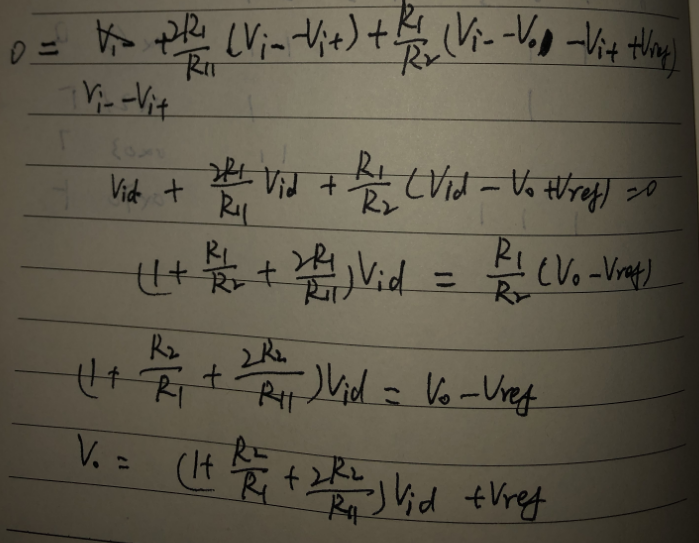 0 = Vi + 2R1/R11 (Vi- - Vi+) + R1/R2 (Vi- - Vo - Vi+ + Vref)
Vi- - Vi+
Vid + 2R1/R11 Vid + R1/R2 (Vid - Vo + Vref) = 0
(1 + R1/R2 + 2R1/R11) Vid = R1/R2 (Vo - Vref)
(1 + R2/R1 + 2R2/R11) Vid = Vo - Vref
Vo = (1 + R2/R1 + 2R2/R11) Vid + Vref